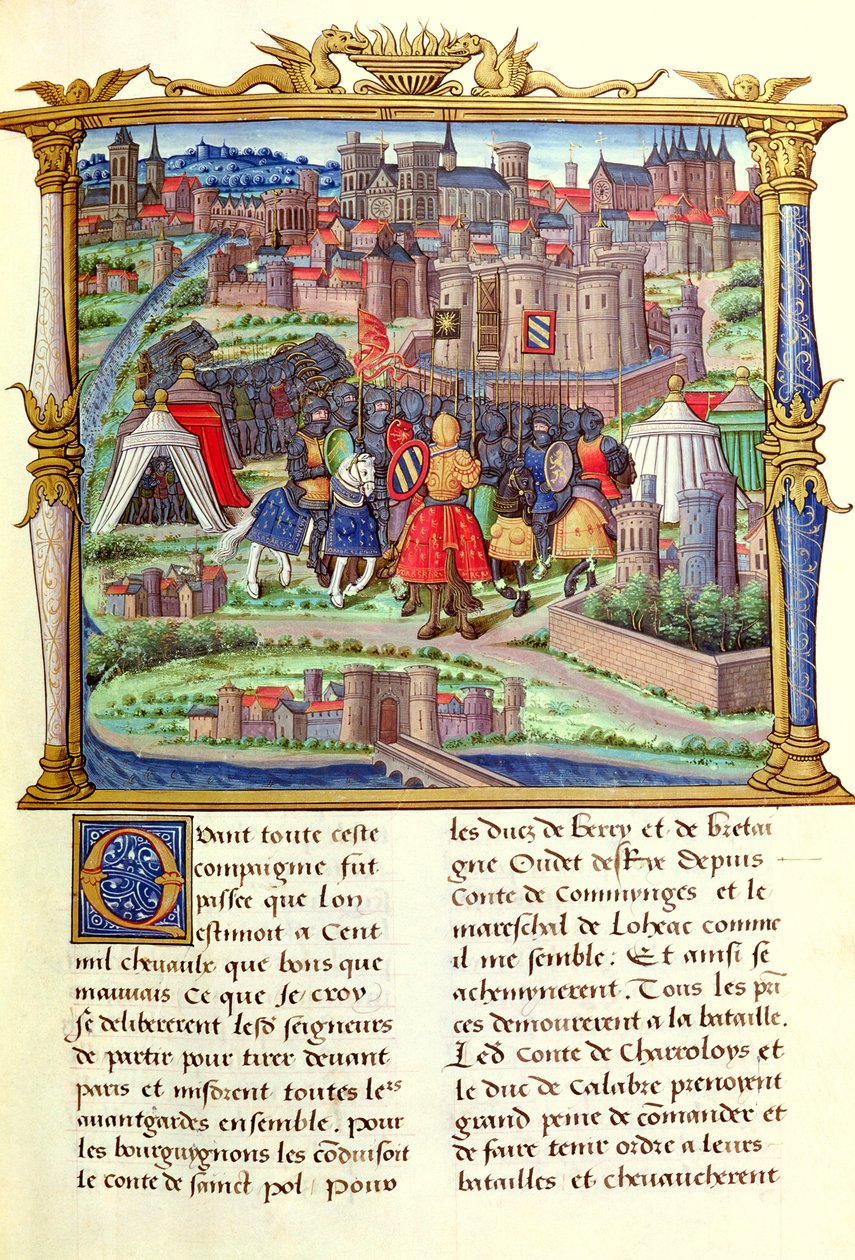 Quant toute ceste
compaignie fut
passee que lon
estimoit a Cent
mil chevaulx que bons que
mauvais Ce que Je croy
Se delibererent lesd seigneurs
de partir pour tirer devant
paris et misdrent toutes le⁽ʳˢ⁾
avantgardes ensemble. Pour
les bourguygnons les cõduisoit
le conte de sainct pol. Pour
les ducz de Berry et de bretai
gne Oudet de Rye depuis
Conte de Commynges et le
mareschal de Loheac comme
il me semble. Et ainsi se
achemynerent. Tous les prĩ
ces demourerent a la bataille.
Led conte de Charroloys et
le duc de Calabre prenoyent
grand peine de cõmander et
de faire tenir ordre a leurs
batailles et chevaucherent